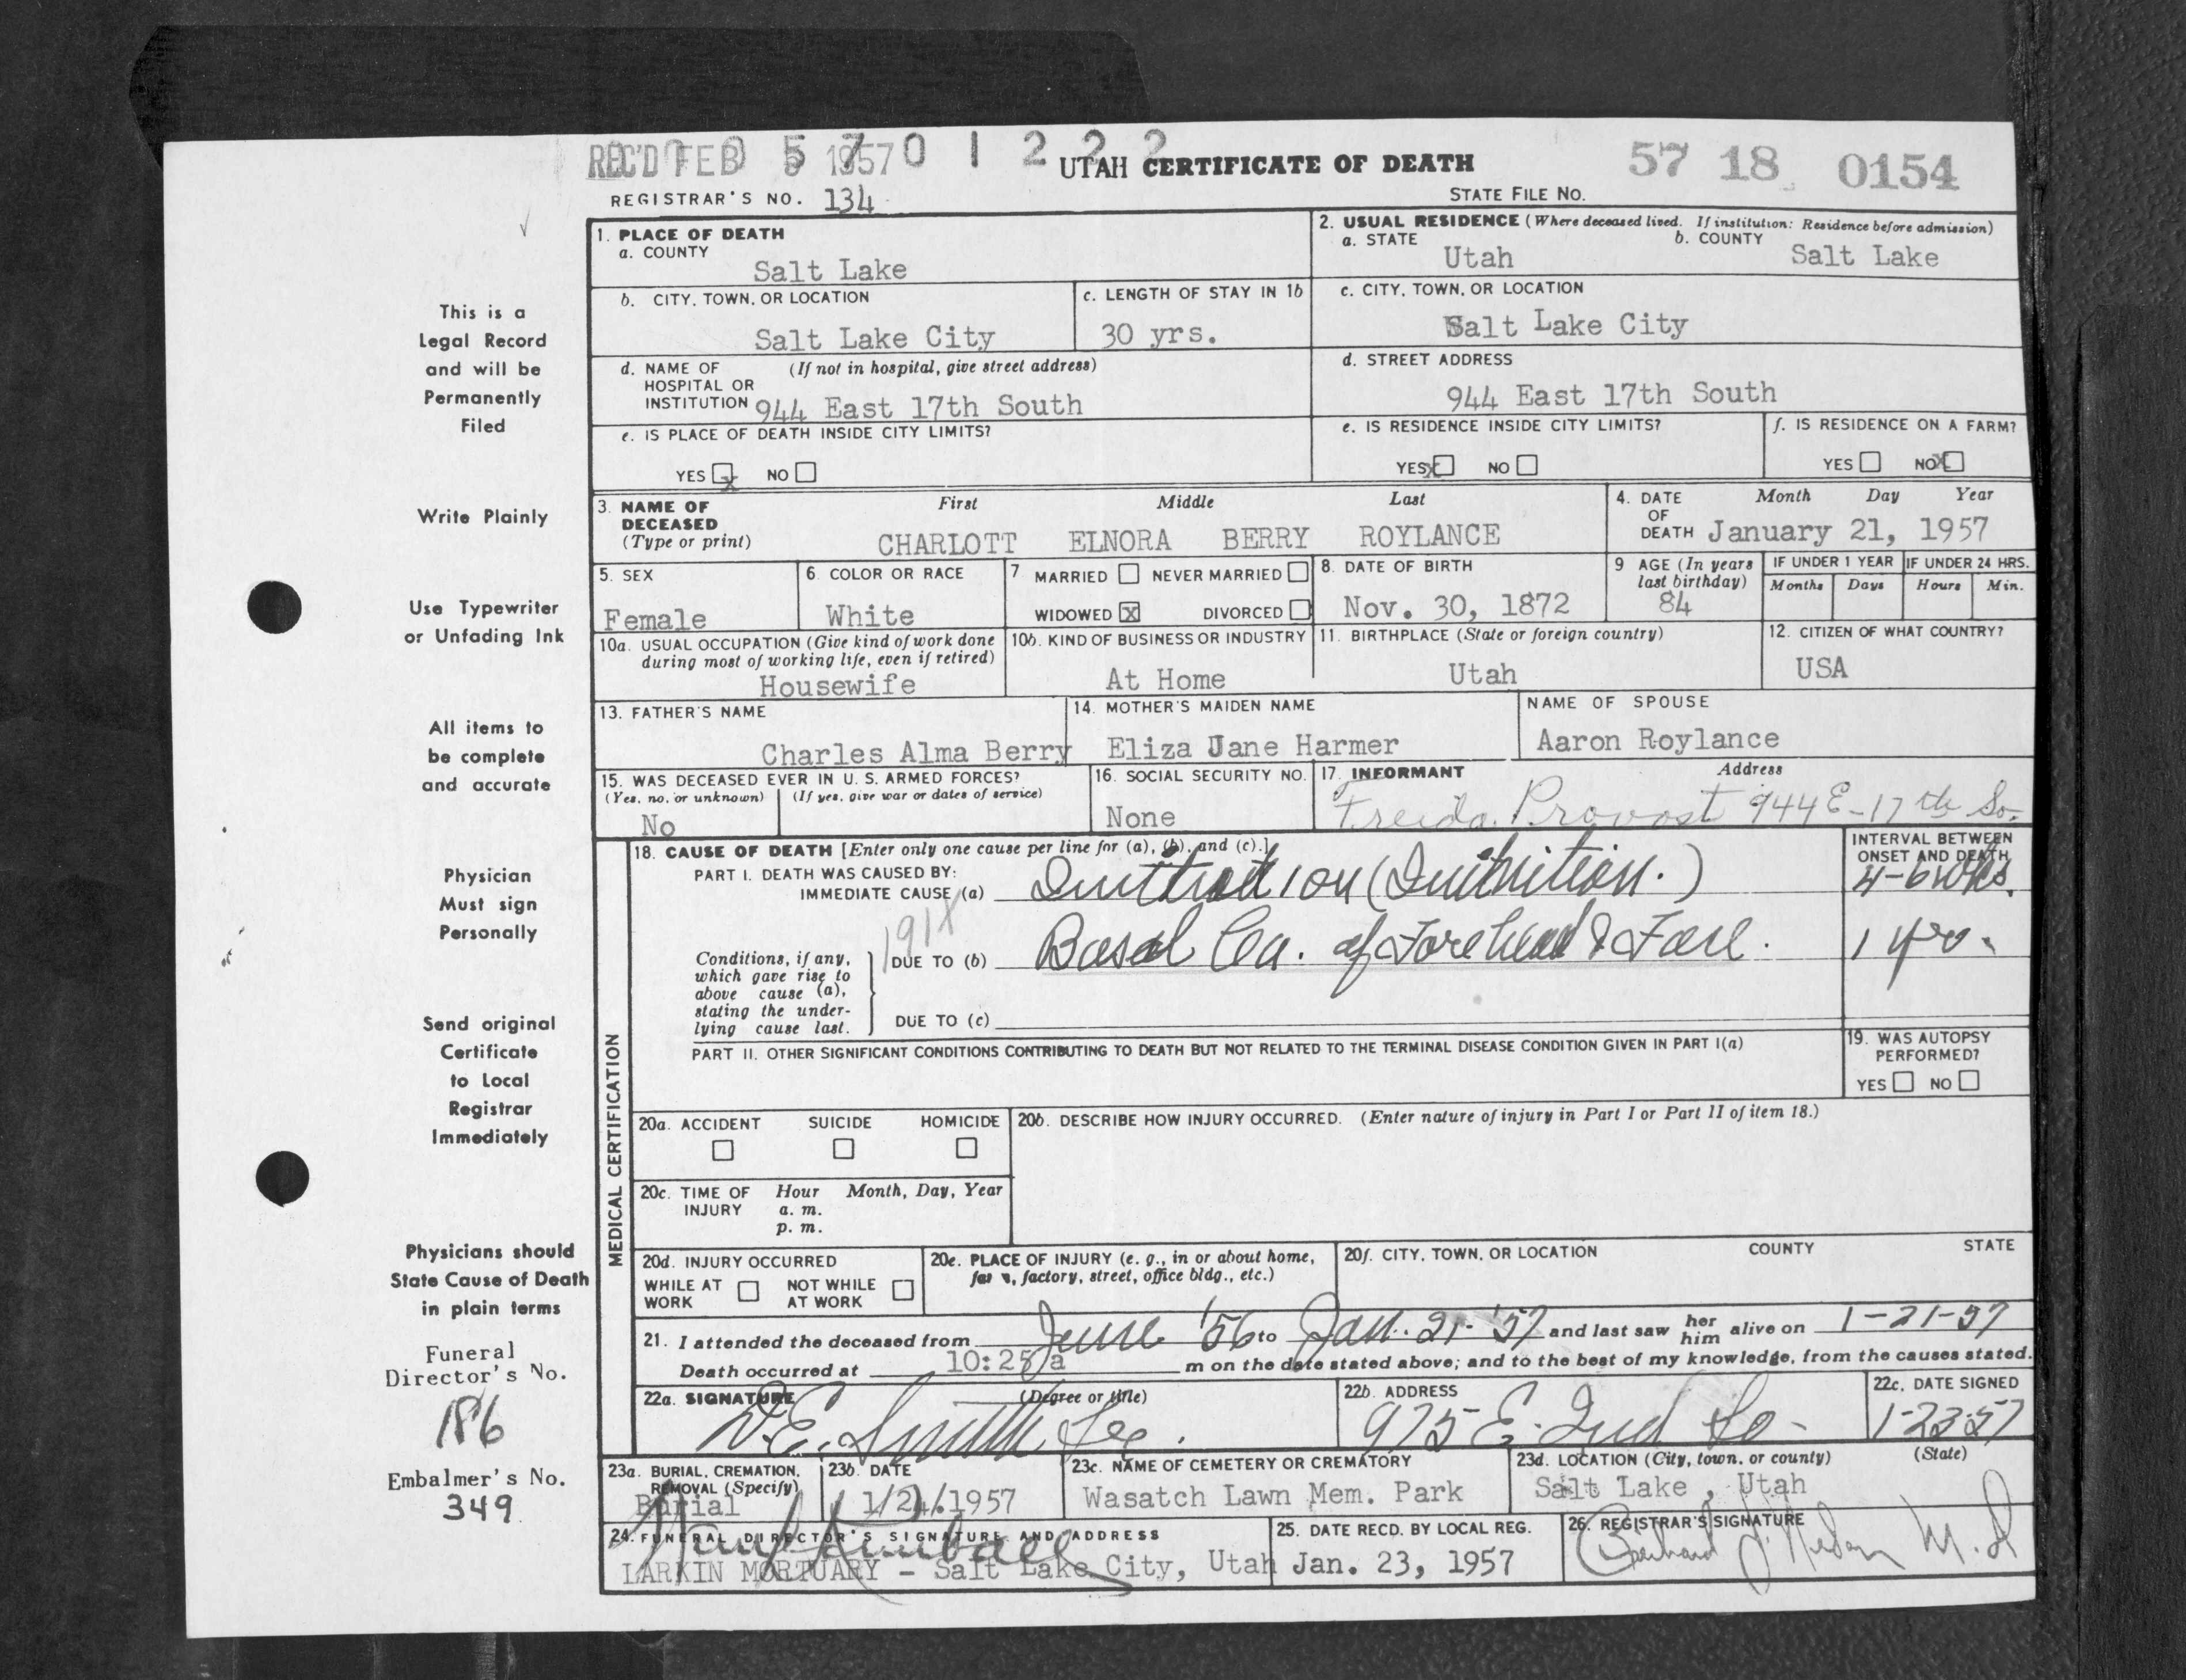 REC'D FEB 5 1957
5 7 0 1 2 2 2
UTAH CERTIFICATE OF DEATH
57 18 0154
REGISTRAR'S NO. 134
STATE FILE NO.
1. PLACE OF DEATH
a. COUNTY
Salt Lake
2. USUAL RESIDENCE (Where deceased lived. If institution: Residence before admission)
a. STATE
Utah
b. COUNTY
Salt Lake
b. CITY, TOWN, OR LOCATION
Salt Lake City
c. LENGTH OF STAY IN 1b
30 yrs.
c. CITY, TOWN, OR LOCATION
Salt Lake City
d. NAME OF (If not in hospital, give street address)
HOSPITAL OR
INSTITUTION 944 East 17th South
d. STREET ADDRESS
944 East 17th South
e. IS PLACE OF DEATH INSIDE CITY LIMITS?
YES X NO
e. IS RESIDENCE INSIDE CITY LIMITS?
YES X NO
f. IS RESIDENCE ON A FARM?
YES NO X
3. NAME OF
DECEASED
(Type or print)
First Middle Last
CHARLOTT ELNORA BERRY ROYLANCE
4. DATE Month Day Year
OF
DEATH January 21, 1957
5. SEX
Female
6. COLOR OR RACE
White
7 MARRIED NEVER MARRIED
WIDOWED X DIVORCED
8. DATE OF BIRTH
Nov. 30, 1872
9 AGE (In years
last birthday)
84
IF UNDER 1 YEAR
Months Days
IF UNDER 24 HRS.
Hours Min.
10a. USUAL OCCUPATION (Give kind of work done
during most of working life, even if retired)
Housewife
10b. KIND OF BUSINESS OR INDUSTRY
At Home
11. BIRTHPLACE (State or foreign country)
Utah
12. CITIZEN OF WHAT COUNTRY?
USA
13. FATHER'S NAME
Charles Alma Berry
14. MOTHER'S MAIDEN NAME
Eliza Jane Harmer
NAME OF SPOUSE
Aaron Roylance
15. WAS DECEASED EVER IN U. S. ARMED FORCES?
(Yes, no, or unknown) (If yes, give war or dates of service)
No
16. SOCIAL SECURITY NO.
None
17. INFORMANT Address
Freida Provost 944 E-17th So.
MEDICAL CERTIFICATION
18. CAUSE OF DEATH [Enter only one cause per line for (a), (b), and (c).]
PART I. DEATH WAS CAUSED BY:
IMMEDIATE CAUSE (a)
INTERVAL BETWEEN
ONSET AND DEATH
4-6 wks.
191X
Conditions, if any,
which gave rise to
above cause (a),
stating the under-
lying cause last.
DUE TO (b) Basal Ca. of Forehead & Face.
1 yr.
DUE TO (c)
PART II. OTHER SIGNIFICANT CONDITIONS CONTRIBUTING TO DEATH BUT NOT RELATED TO THE TERMINAL DISEASE CONDITION GIVEN IN PART I(a)
19. WAS AUTOPSY
PERFORMED?
YES NO
20a. ACCIDENT SUICIDE HOMICIDE
20b. DESCRIBE HOW INJURY OCCURRED. (Enter nature of injury in Part I or Part II of item 18.)
20c. TIME OF Hour Month, Day, Year
INJURY a. m.
p. m.
20d. INJURY OCCURRED
WHILE AT NOT WHILE
WORK AT WORK
20e. PLACE OF INJURY (e. g., in or about home,
factory, street, office bldg., etc.)
20f. CITY, TOWN, OR LOCATION COUNTY STATE
21. I attended the deceased from June '56 to Jan. 21-'57 and last saw her him alive on 1-21-57
Death occurred at 10:25 a m on the date stated above; and to the best of my knowledge, from the causes stated.
22a. SIGNATURE (Degree or title)
D.E. Smith
22b. ADDRESS
975 E. 2nd So-
22c. DATE SIGNED
1-23-57
23a. BURIAL, CREMATION,
REMOVAL (Specify)
Burial
23b. DATE
1/24/1957
23c. NAME OF CEMETERY OR CREMATORY
Wasatch Lawn Mem. Park
23d. LOCATION (City, town, or county) (State)
Salt Lake, Utah
24. FUNERAL DIRECTOR'S SIGNATURE AND ADDRESS
LARKIN MORTUARY - Salt Lake City, Utah
25. DATE RECD. BY LOCAL REG.
Jan. 23, 1957
26. REGISTRAR'S SIGNATURE
M.D.
This is a
Legal Record
and will be
Permanently
Filed
Write Plainly
Use Typewriter
or Unfading Ink
All items to
be complete
and accurate
Physician
Must sign
Personally
Send original
Certificate
to Local
Registrar
Immediately
Physicians should
State Cause of Death
in plain terms
Funeral
Director's No.
186
Embalmer's No.
349